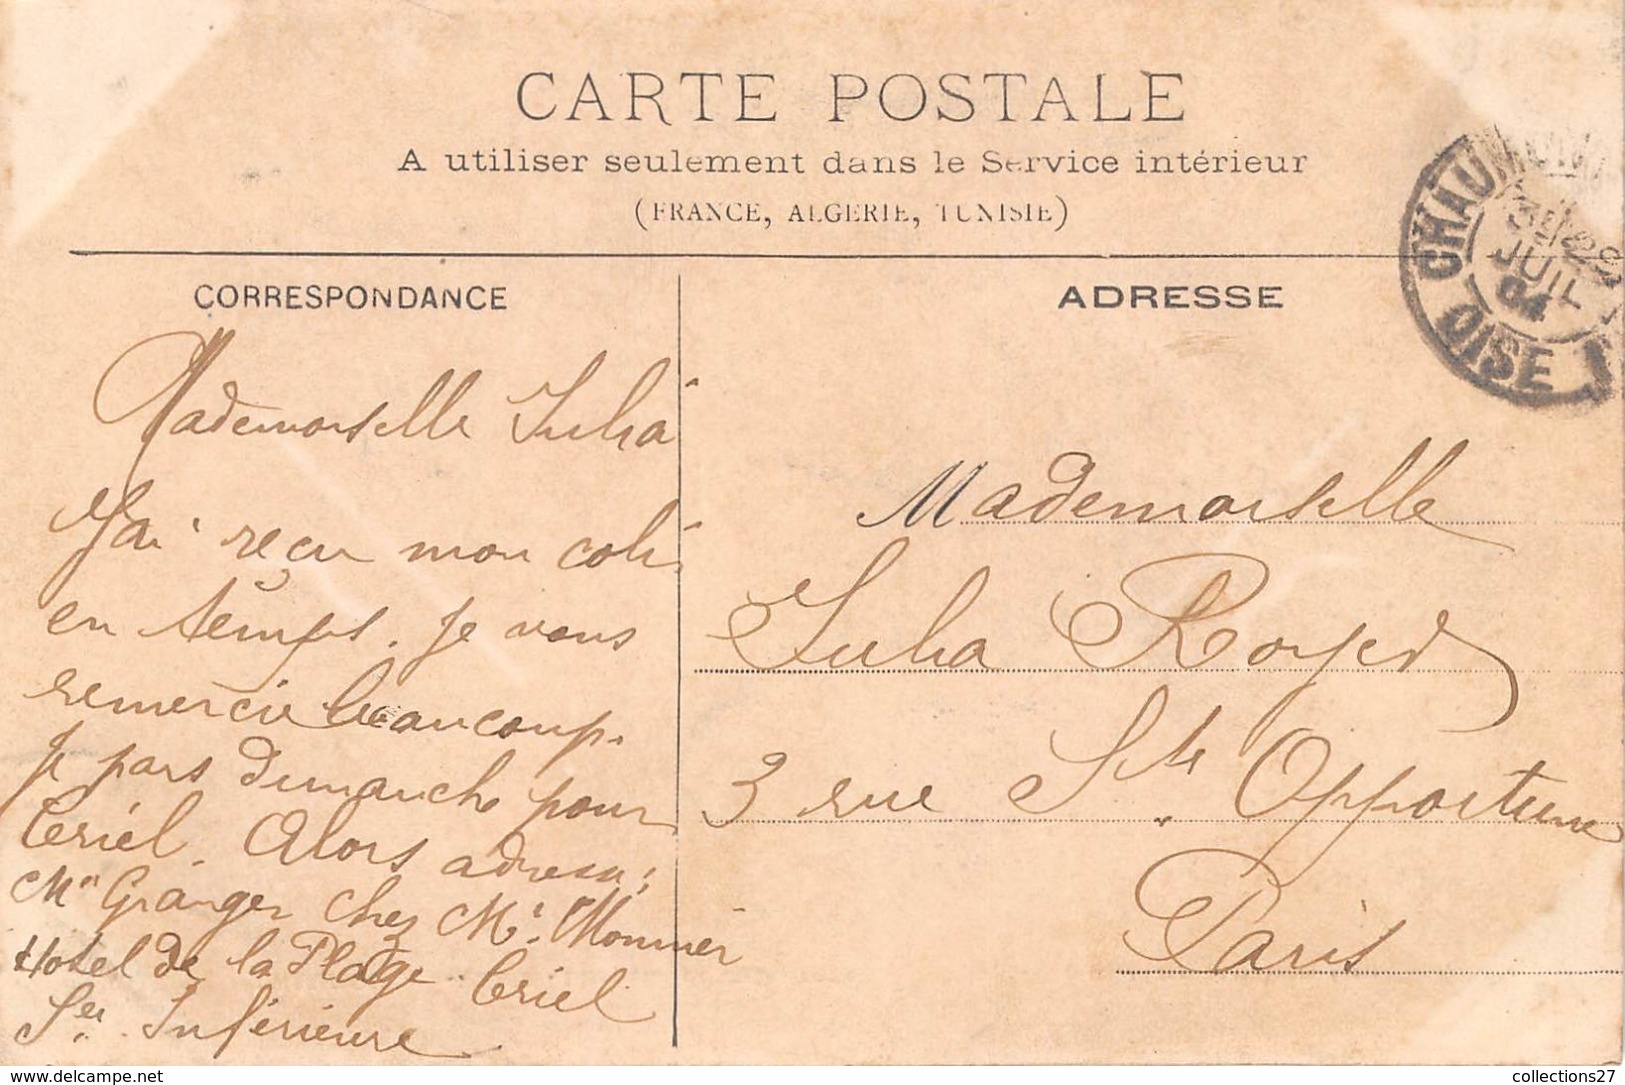 CARTE POSTALE
A utiliser seulement dans le Service intérieur
(FRANCE, ALGERIE, TUNISIE)
CORRESPONDANCE
Mademoiselle Julia
J'ai reçu mon coli
en temps. Je vous
remercie beaucoup.
Je pars Dimanche pour
Criel. Alors adresse:
Mlle Granger chez Mr. Monnier
Hotel de la Plage Criel
Sne Inférieure
ADRESSE
CHAUMONT
JUIL
04
OISE
Mademoiselle
Julia Royer
3 rue Ste Opportune
Paris
collections27